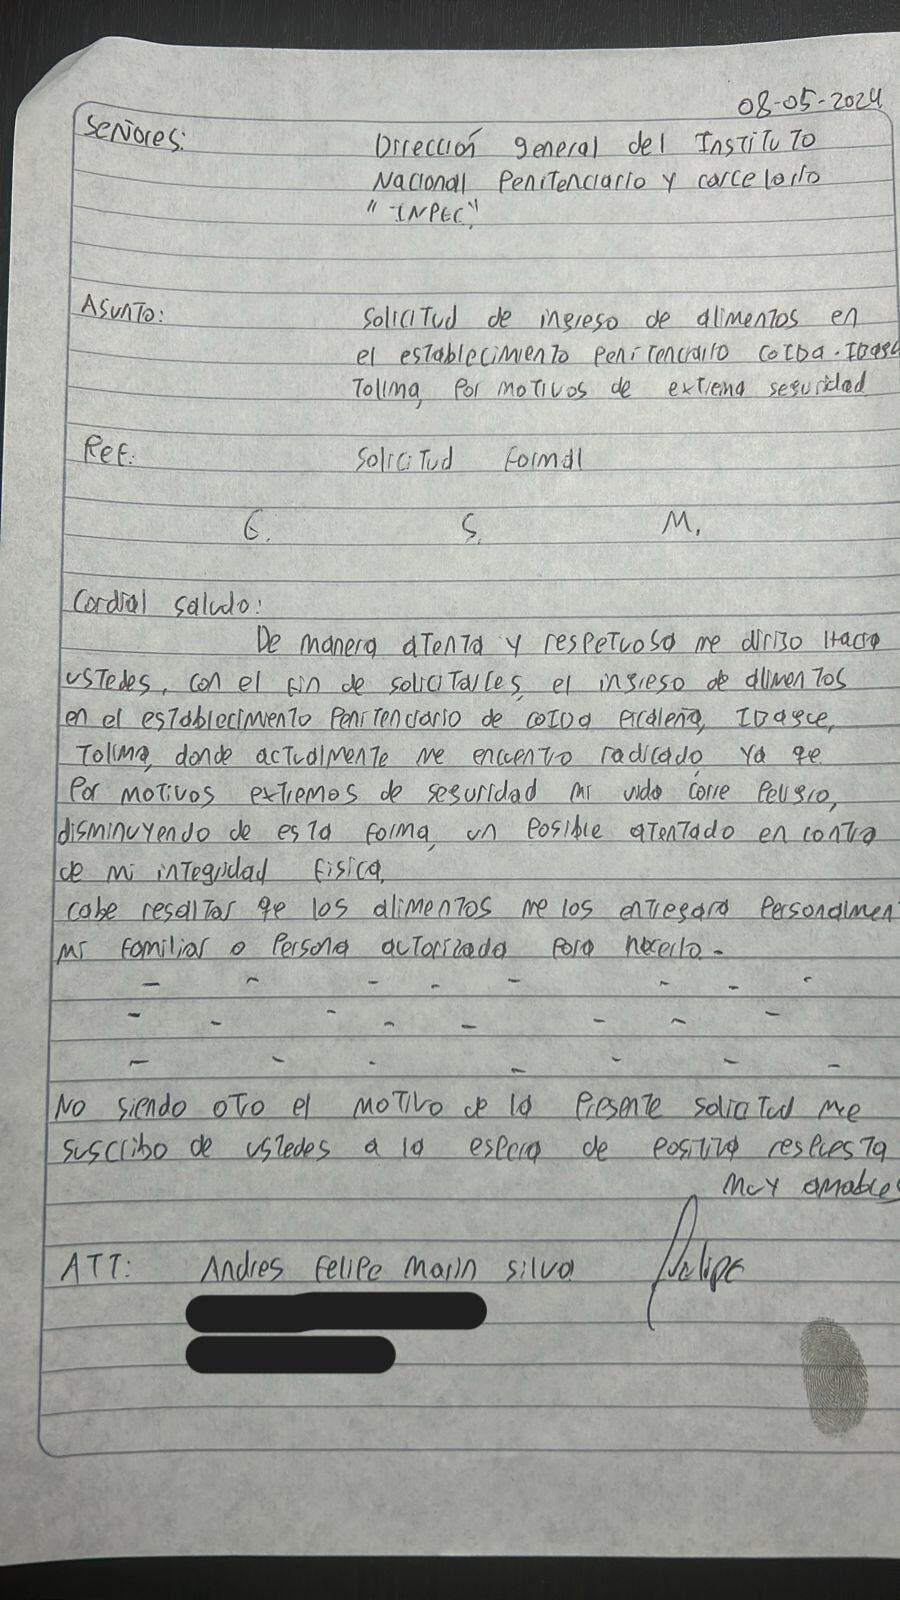 08-05-2024
Señores: Dirección general del Instituto
Nacional Penitenciario y carcelario
"INPEC"
Asunto: Solicitud de ingreso de alimentos en
el establecimiento penitenciario COIBA-IBAGU
Tolima, por motivos de extrema seguridad
Ref: Solicitud Formal
E. S. M.
Cordial saludo:
De manera atenta y respetuosa me dirijo Hacia
ustedes, con el fin de solicitarles, el ingreso de alimentos
en el establecimiento penitenciario de coiba picaleña, Ibague,
Tolima, donde actualmente me encuentro radicado ya qe
por motivos extremos de seguridad mi vida corre peligro,
disminuyendo de esta forma, un posible atentado en contra
de mi integridad física,
cabe resaltar qe los alimentos me los entregara personalmen
mi familiar o persona autorizada para hacerlo.-
No siendo otro el motivo de la presente solicitud me
suscribo de ustedes a la espera de positiva respuesta
Muy amables
ATT: Andres Felipe Marin Silva Felipe